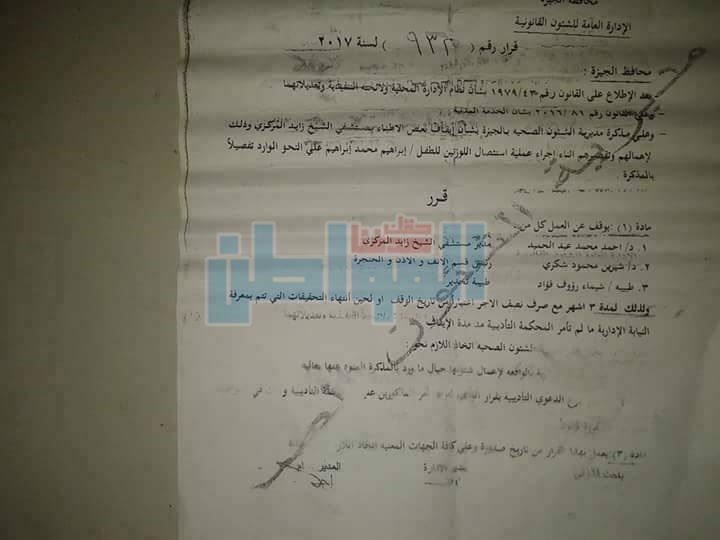 محافظة الجيزة
الإدارة العامة للشئون القانونية
قرار رقم ( ٩٣٢ ) لسنة ٢٠١٧
محافظ الجيزة :
بعد الإطلاع على القانون رقم ١٩٧٩/٤٣ بشأن نظام الإدارة المحلية ولائحته التنفيذية وتعديلاتهما
– وعلى القانون رقم ٢٠١٦/٨١ بشأن الخدمة المدنية
– وعلى مذكرة مديرية الشئون الصحيه بالجيزة بشأن إيقاف بعض الاطباء بمستشفي الشيخ زايد المركزي وذلك
لإهمالهم وتقصيرهم اثناء إجراء عملية استئصال اللوزتين للطفل / إبراهيم محمد إبراهيم علي النحو الوارد تفصيلاً
بالمذكرة
قرر
مادة (١) :يوقف عن العمل كل من
١. د/ احمد محمد عبد الحميد مدير مستشفي الشيخ زايد المركزي
٢. د/ شيرين محمود شكري رئيس قسم الانف و الاذن و الحنجرة
٣. طبيبه / شيماء رؤوف فؤاد طبيبة تخدير
وذلك لمدة ٣ اشهر مع صرف نصف الاجر اعتبارا من تاريخ الوقف او لحين انتهاء التحقيقات التي تتم بمعرفة
النيابة الإدارية ما لم تأمر المحكمة التأديبية مد مدة الإيقاف
لشئون الصحيه اتخاذ اللازم نحو :
بالواقعه لإعمال شئونها حيال ما ورد بالمذكرة المنوه عنها بعاليه
الدعوي التأديبية بقرار
التأديبية و في
مادة (٣) يعمل بهذا القرار من تاريخ صدوره وعلي كافة الجهات المعنيه اتخاذ
مدير الادارة
المدير
المواطن
حقك